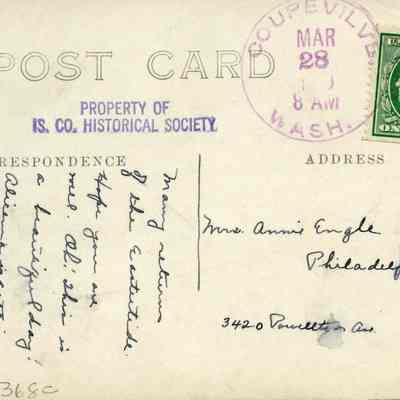 POST CARD
COUPEVILVE
MAR
28
8 AM
WASH.
PROPERTY OF
IS. CO. HISTORICAL SOCIETY.
RESPONDENCE
ADDRESS
Many returns
of the Eastertide.
Hope you are
well. Oh! This is
a beautiful day!
Mrs. Annie Engle
Philadel
3420 Powelton Av.
368c